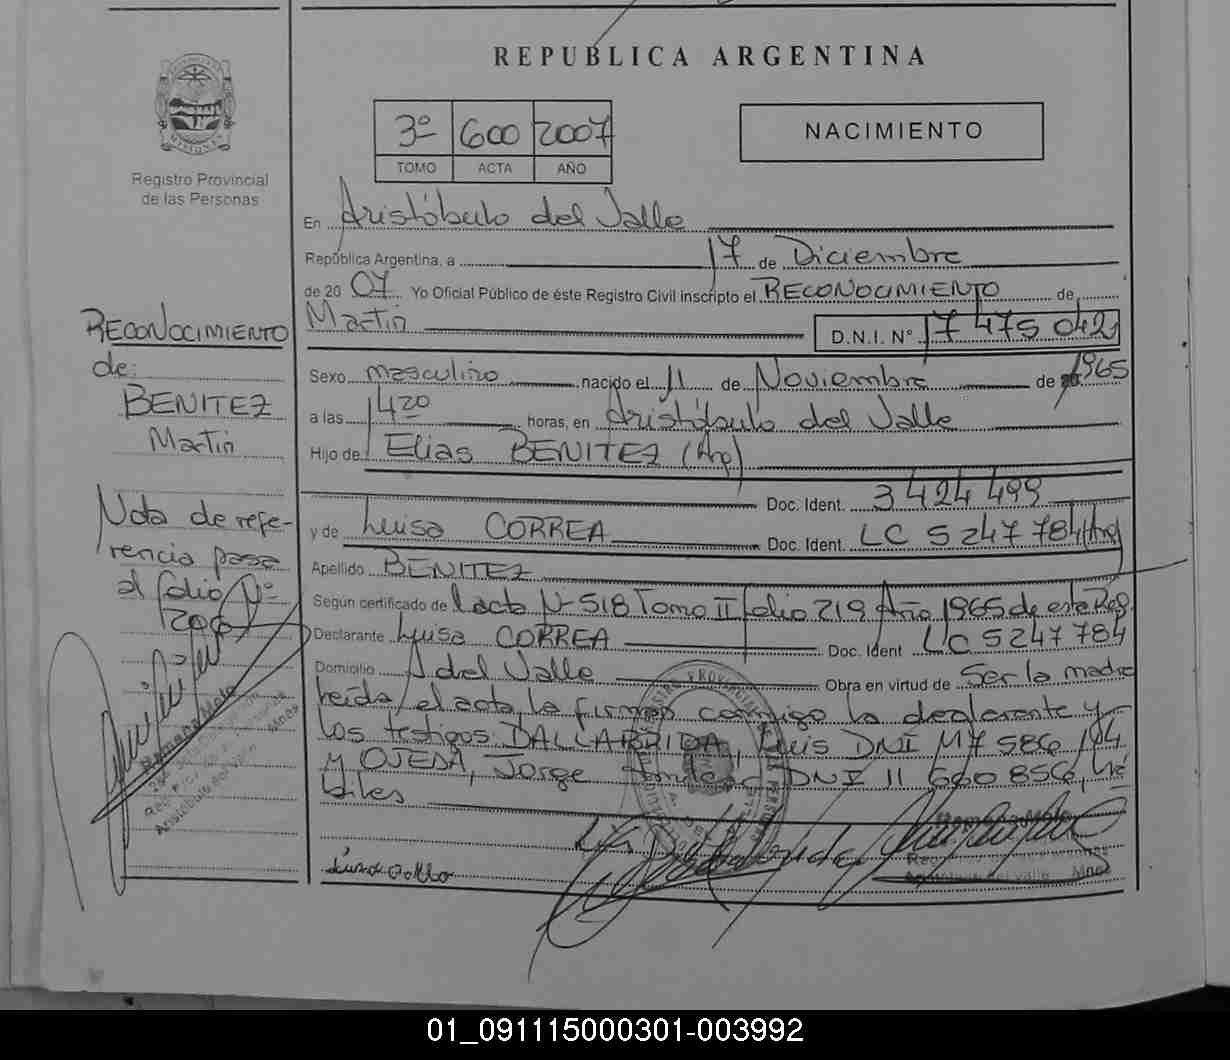 REPUBLICA ARGENTINA
3º 600 2007
TOMO ACTA AÑO
NACIMIENTO
Registro Provincial
de las Personas
En Aristóbulo del Valle
República Argentina, a 17 de Diciembre
de 20 07 Yo Oficial Público de éste Registro Civil inscripto el RECONOCIMIENTO de
Martin D.N.I. Nº 17 475 042
Sexo masculino nacido el 11 de Noviembre de 1965
a las 1420 horas, en Aristóbulo del Valle
Hijo de Elias BENITEZ (Arg)
Doc. Ident. 3 424 499
y de Luisa CORREA Doc. Ident. LC 5 247 784 (Arg)
Apellido BENITEZ
Según certificado de acta Nº 518 Tomo II folio 219 Año 1965 de este Reg.
Declarante Luisa CORREA Doc. Ident LC 5 247 784
Domicilio A del Valle Obra en virtud de Ser la madre
Leida el acta, la firman conmigo la declarante y
los testigos DALLABRIDA, Luis DNI M7 586 184
y OJEDA, Jorge DNI 11 660 856, há
biles
RECONOCIMIENTO
de:
BENITEZ
Martin
Nota de refe-
rencia pasa
al folio Nº
200
01_091115000301-003992